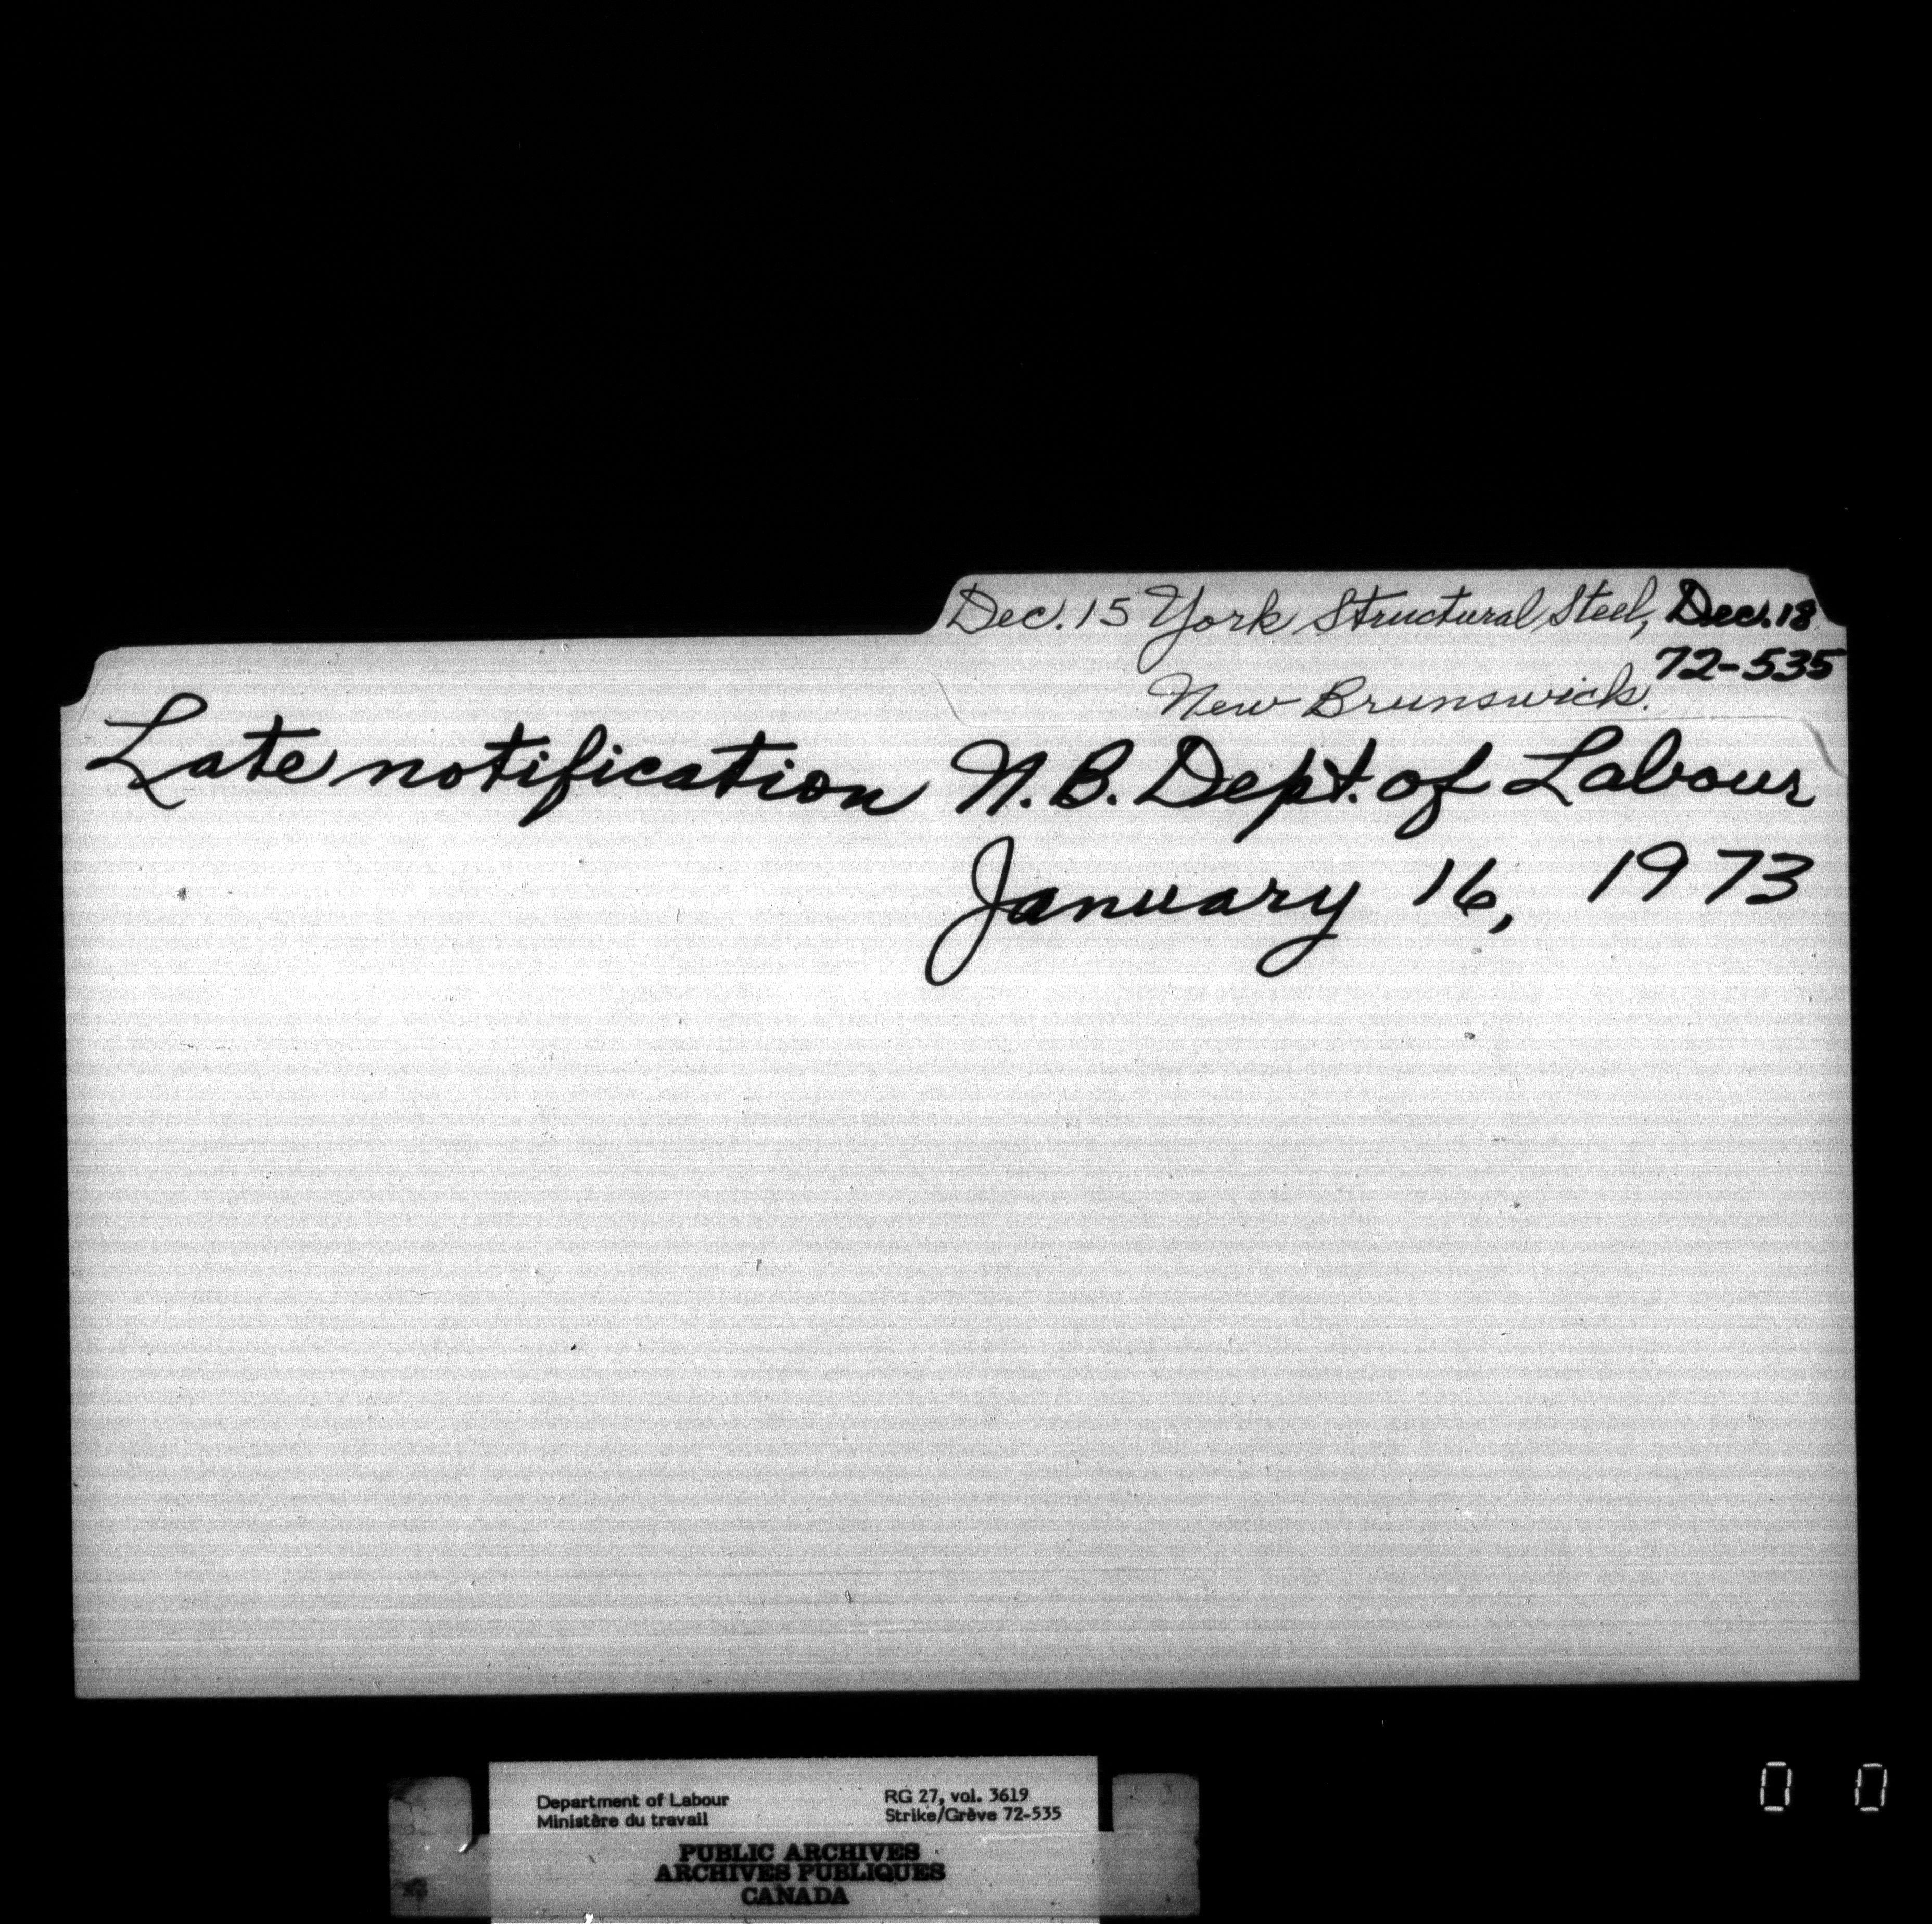 Dec. 15 York Structural Steel, Dec. 18
72-535
New Brunswick.
Late notification N.B. Dept. of Labour
January 16, 1973
0 0
Department of Labour RG 27, vol. 3619
Ministère du travail Strike/Grève 72-535
PUBLIC ARCHIVES
ARCHIVES PUBLIQUES
CANADA